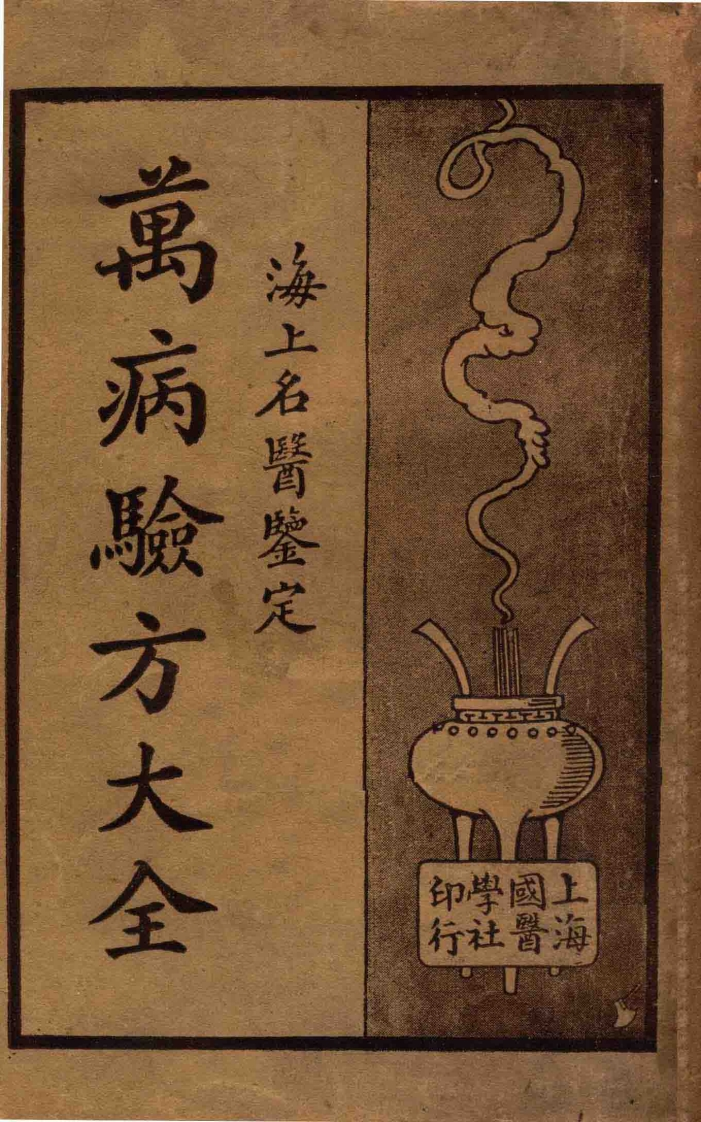 海上名醫鑒定
萬病驗方大全
上海
國醫
學社
印行